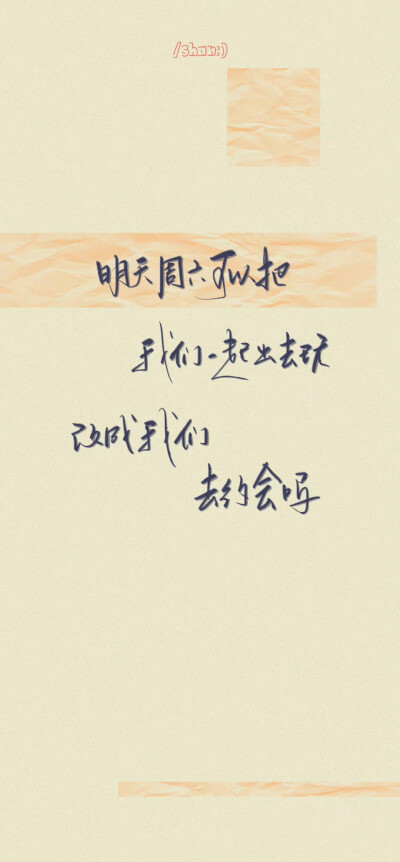 /shan:)
明天周六可以把
我们一起出去玩
改成我们
去约会吗